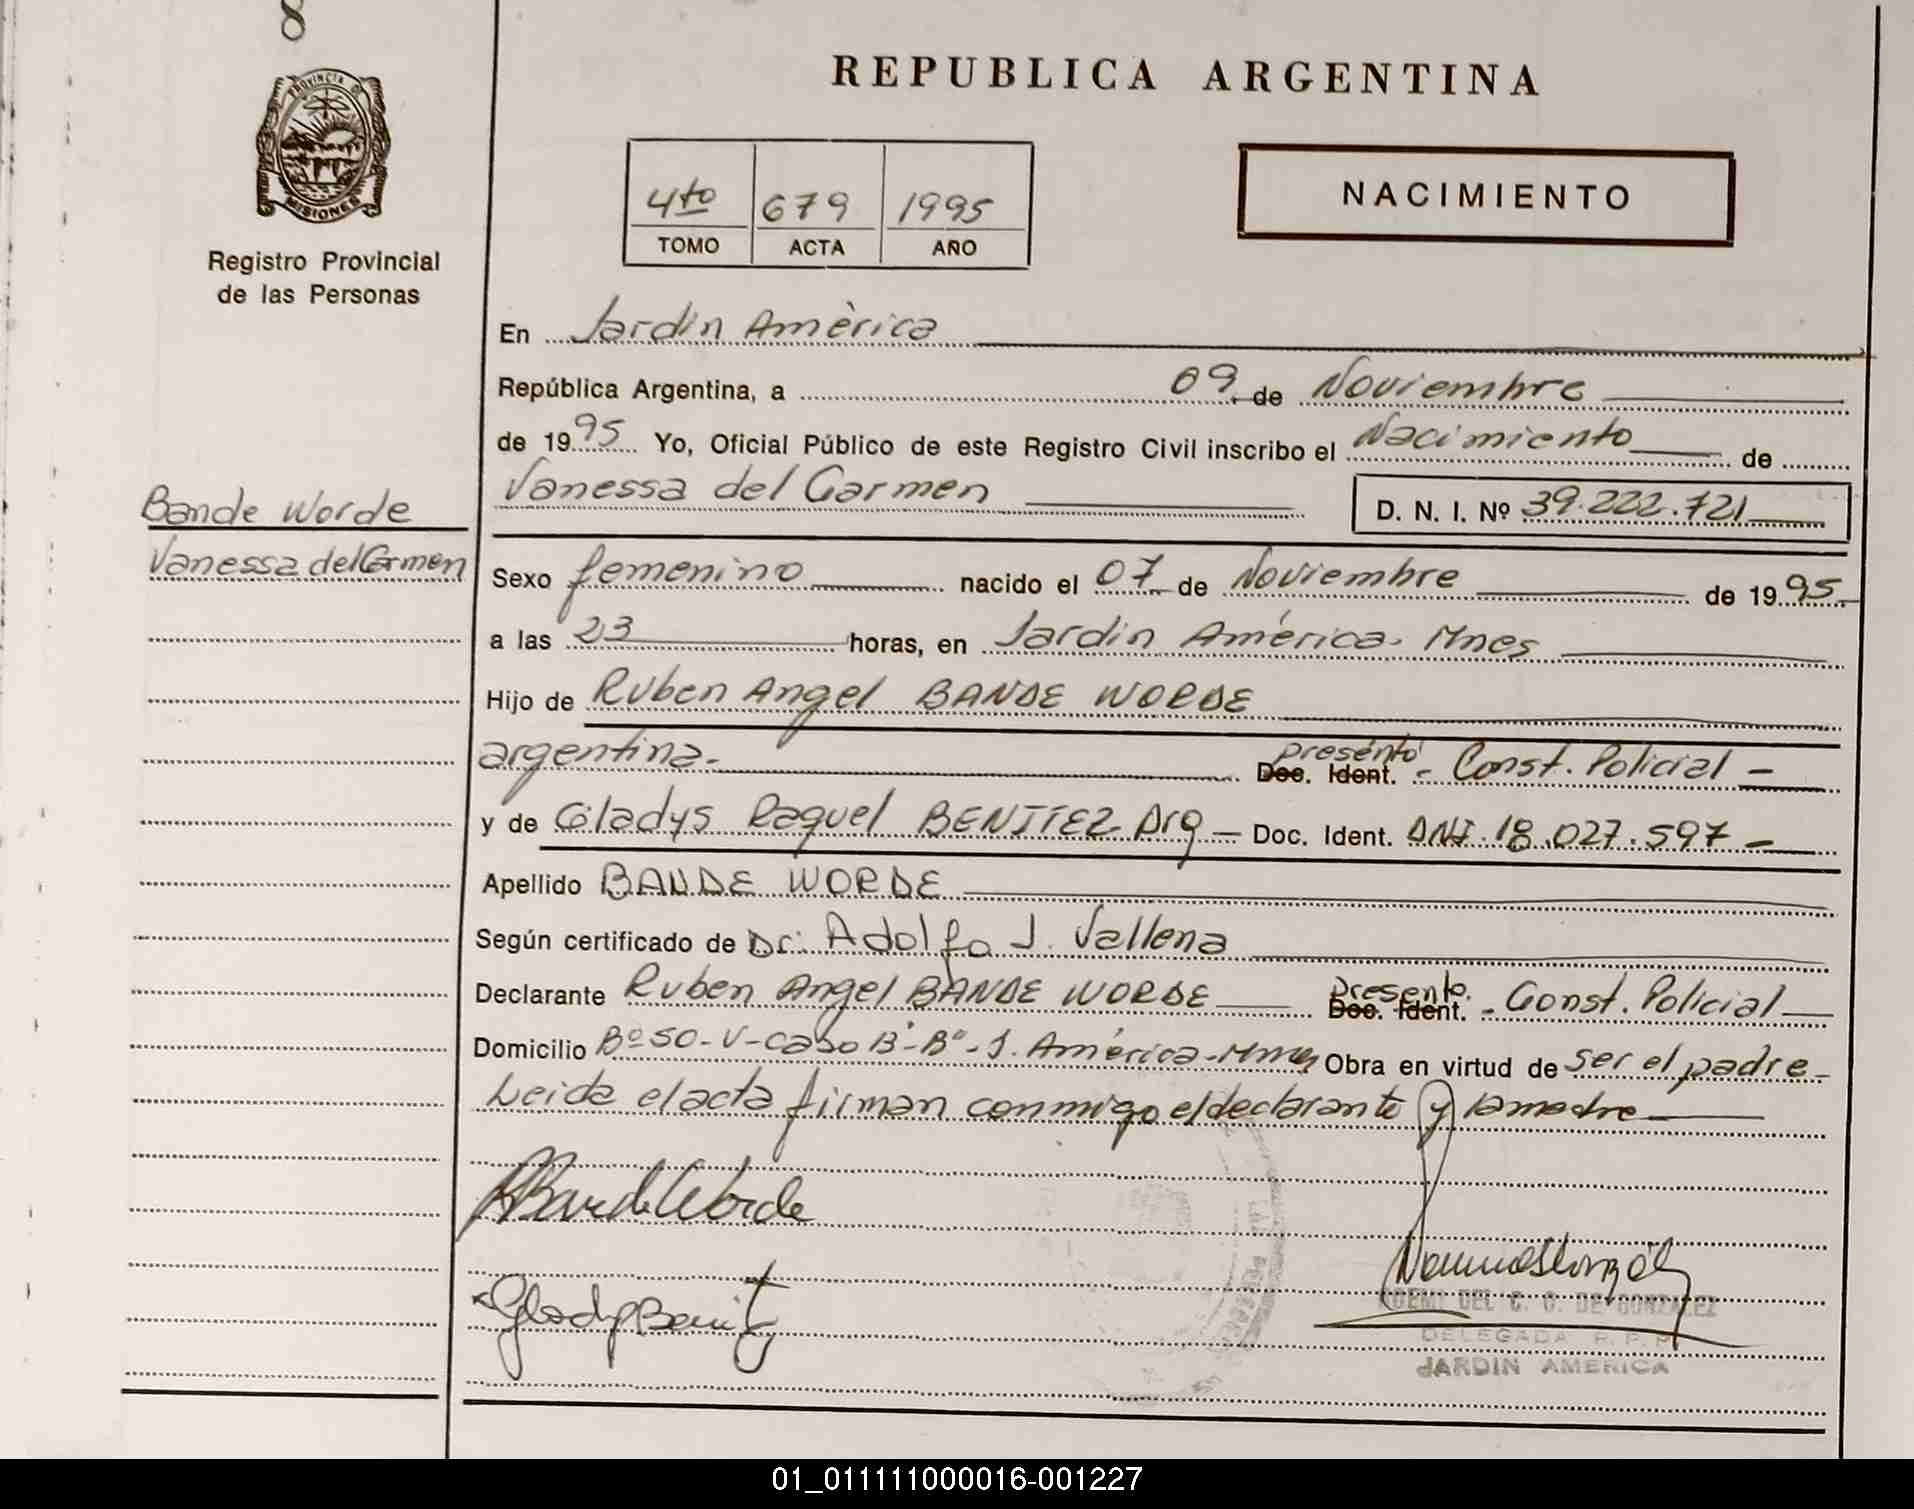 8
PROVINCIA DE
MISIONES
Registro Provincial
de las Personas
REPUBLICA ARGENTINA
4to 679 1995
TOMO ACTA AÑO
NACIMIENTO
En Jardin Amèrica
República Argentina, a 09 de Noviembre
de 1995 Yo, Oficial Público de este Registro Civil inscribo el Nacimiento de
Vanessa del Carmen D. N. I. Nº 39.222.721
Bande Worde
Vanessa del Carmen
Sexo femenino nacido el 07 de Noviembre de 1995
a las 23 horas, en Jardin América. Mnes
Hijo de Ruben Angel BANDE WORDE
argentina. presentó Doc. Ident. - Const. Policial -
y de Gladys Raquel BENITEZ Arg - Doc. Ident. DNI. 18.027.597 -
Apellido BANDE WORDE
Según certificado de Dr. Adolfo J. Vallena
Declarante Ruben Angel BANDE WORDE presento. Doc. Ident. - Const. Policial
Domicilio Bº 50-V-Casa B- Bº- J. América-Mnes Obra en virtud de ser el padre-
Leida el acta firman conmigo el declarante y la madre
Gladys Benitez
NOEMI DEL C. G. DE GONZALEZ
DELEGADA R. P. P.
JARDIN AMERICA
01_011111000016-001227